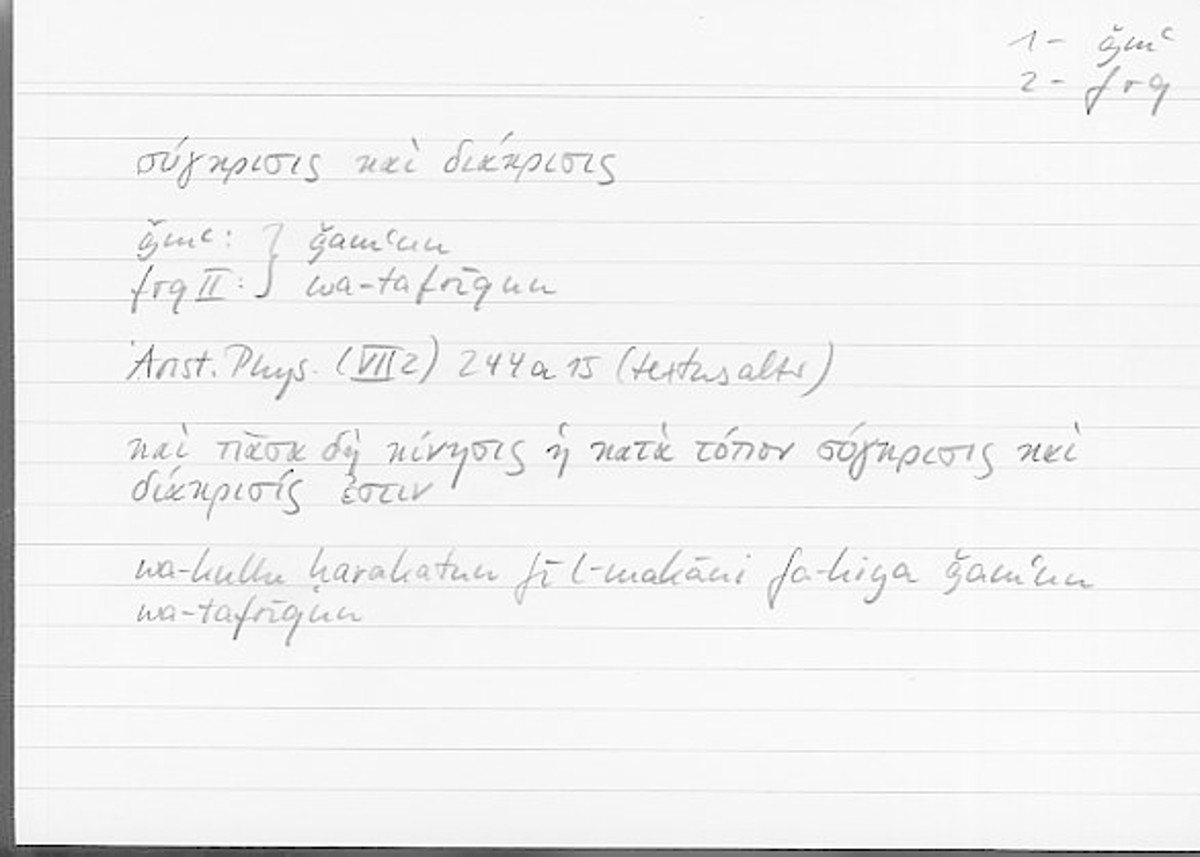 1- ǧmʿ
2- frq
σύγκρισις καὶ διάκρισις
ǧmʿ: } ǧamʿun
frq II: } wa-tafrīqun
Arist. Phys. (VII 2) 244a15 (textus alter)
καὶ πᾶσα δὴ κίνησις ἡ κατὰ τόπον σύγκρισις καὶ
διάκρισίς ἐστιν
wa-kullu ḥarakatun fī l-makāni fa-hiya ǧamʿun
wa-tafrīqun